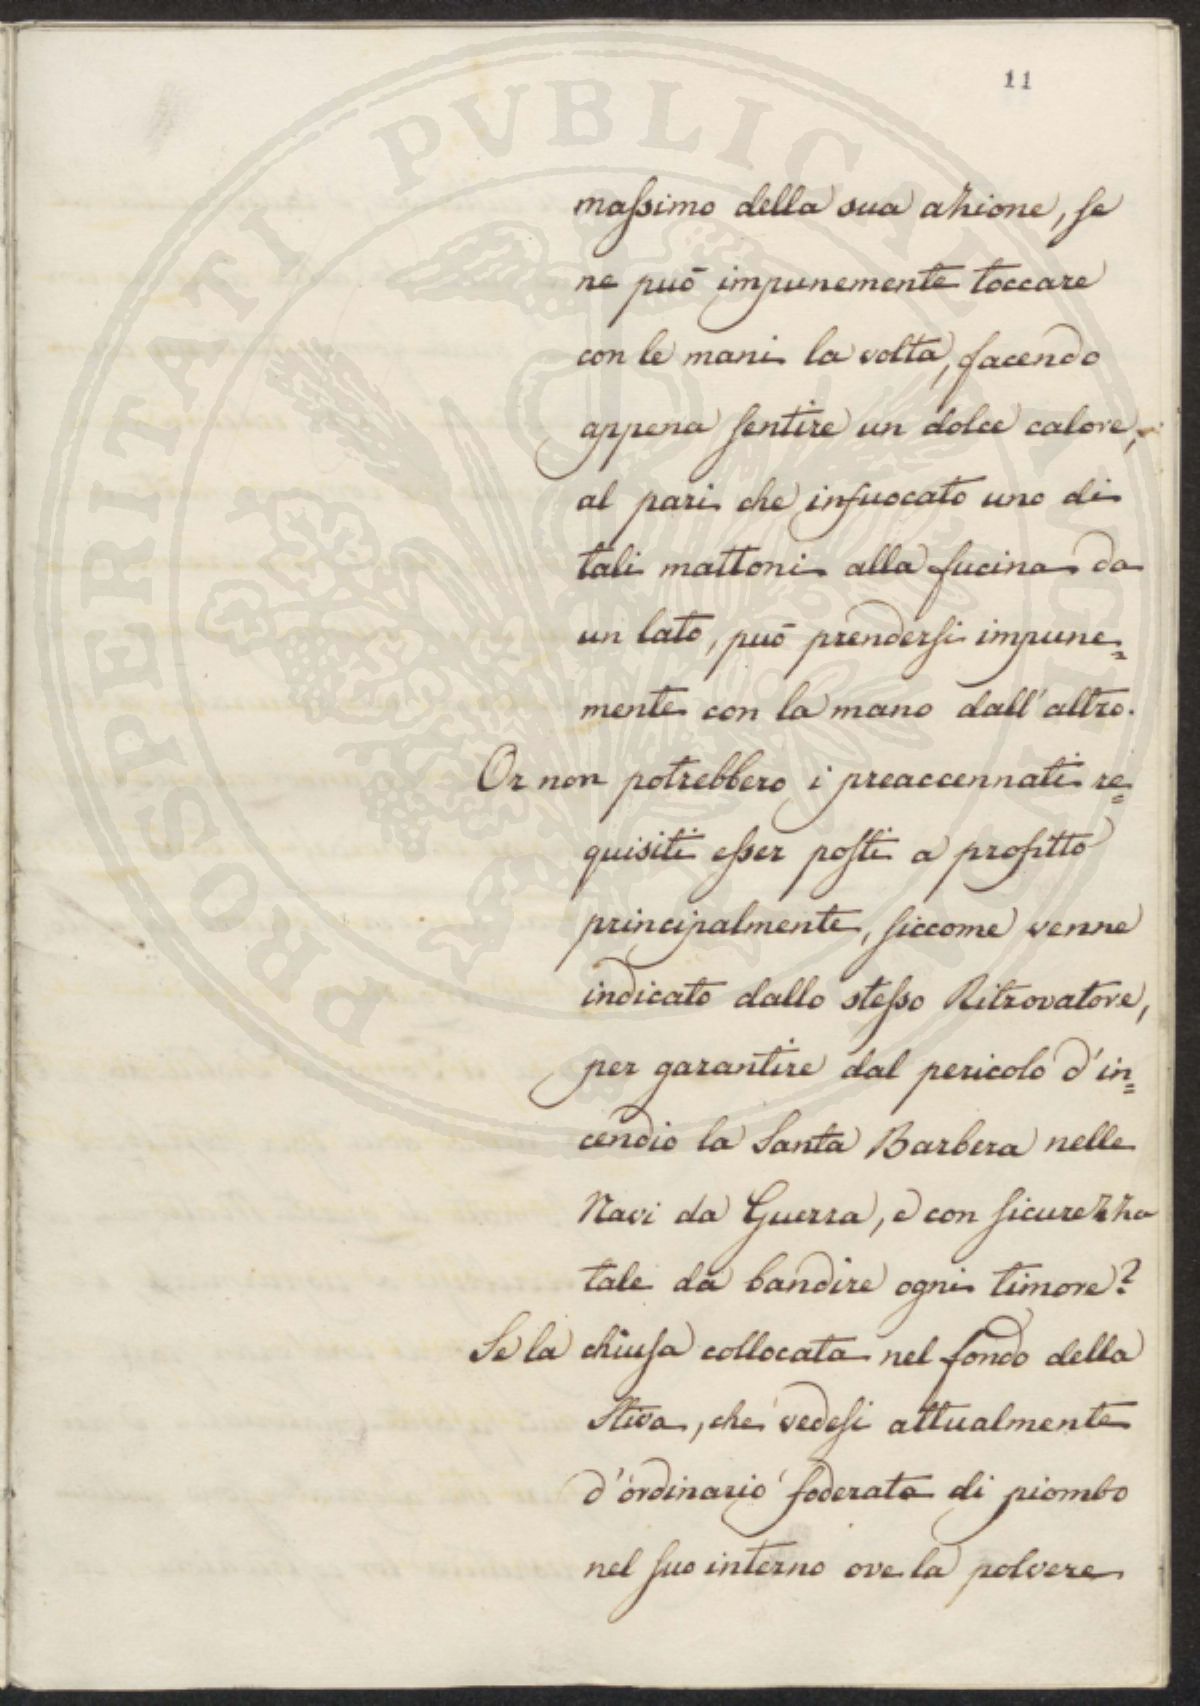 11
massimo della sua azione, se
ne può impunemente toccare
con le mani la volta, facendo
appena sentire un dolce calore,
al pari che infuocato uno di
tali mattoni alla fucina da
un lato, può prendersi impune=
mente con la mano dall'altro.
Or non potrebbero i preaccennati re=
quisiti esser posti a profitto
principalmente, siccome venne
indicato dallo stesso Ritrovatore,
per garantire dal pericolo d'in=
cendio la Santa Barbera nelle
Navi da Guerra, e con sicurezza
tale da bandire ogni timore?
Se la chiusa collocata nel fondo della
Stiva, che vedesi attualmente
d'ordinario foderata di piombo
nel suo interno ove la polvere
PROSPERITATI PUBLICAE AUGENDAE